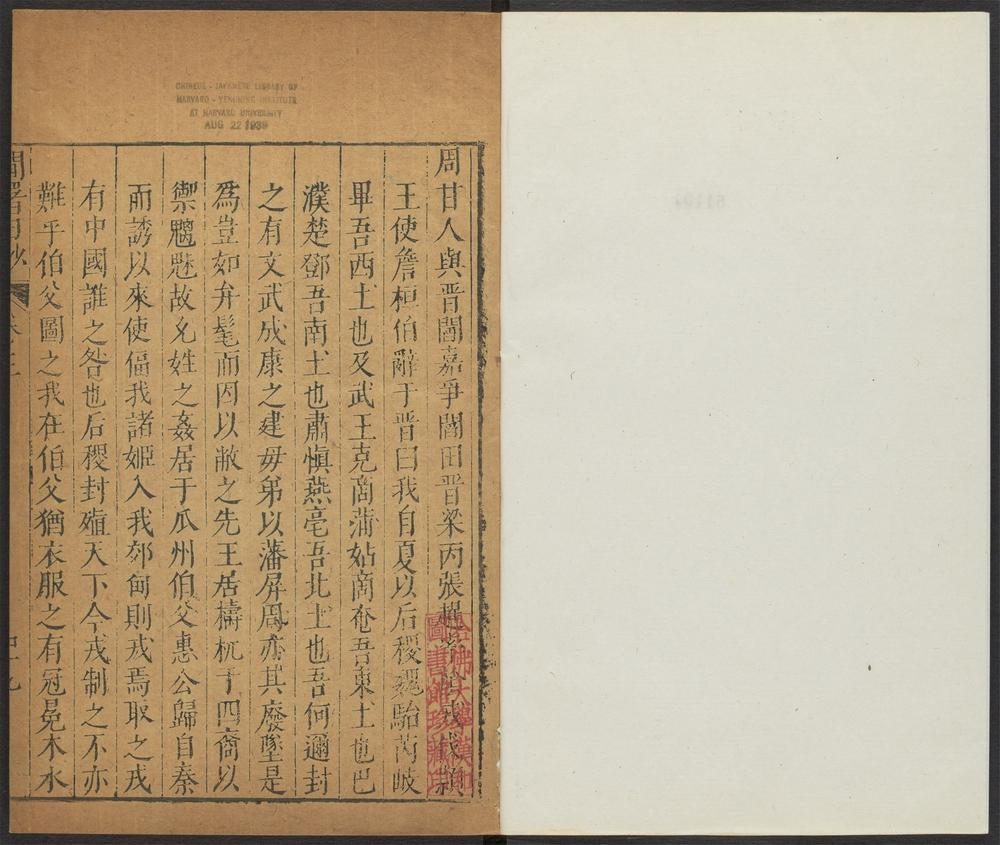 CHINESE - JAPANESE LIBRARY OF
HARVARD - YENCHING INSTITUTE
AT HARVARD UNIVERSITY
AUG 22 1939
周甘人與晋閻嘉爭閻田晋梁丙張趯率陰戎伐潁
王使詹桓伯辭于晋曰我自夏以后稷魏駘芮岐
畢吾西土也及武王克商蒲姑商奄吾東土也巴
濮楚鄧吾南土也肅愼燕亳吾北土也吾何邇封
之有文武成康之建毋弟以藩屏周亦其廢墜是
爲豈如弁髦而因以敝之先王居檮杌于四裔以
禦魑魅故允姓之姦居于瓜州伯父惠公歸自秦
而誘以來使偪我諸姬入我郊甸則戎焉取之戎
有中國誰之咎也后稷封殖天下今戎制之不亦
難乎伯父圖之我在伯父猶衣服之有冠冕木水
哈佛大學漢和
圖書館珍藏印